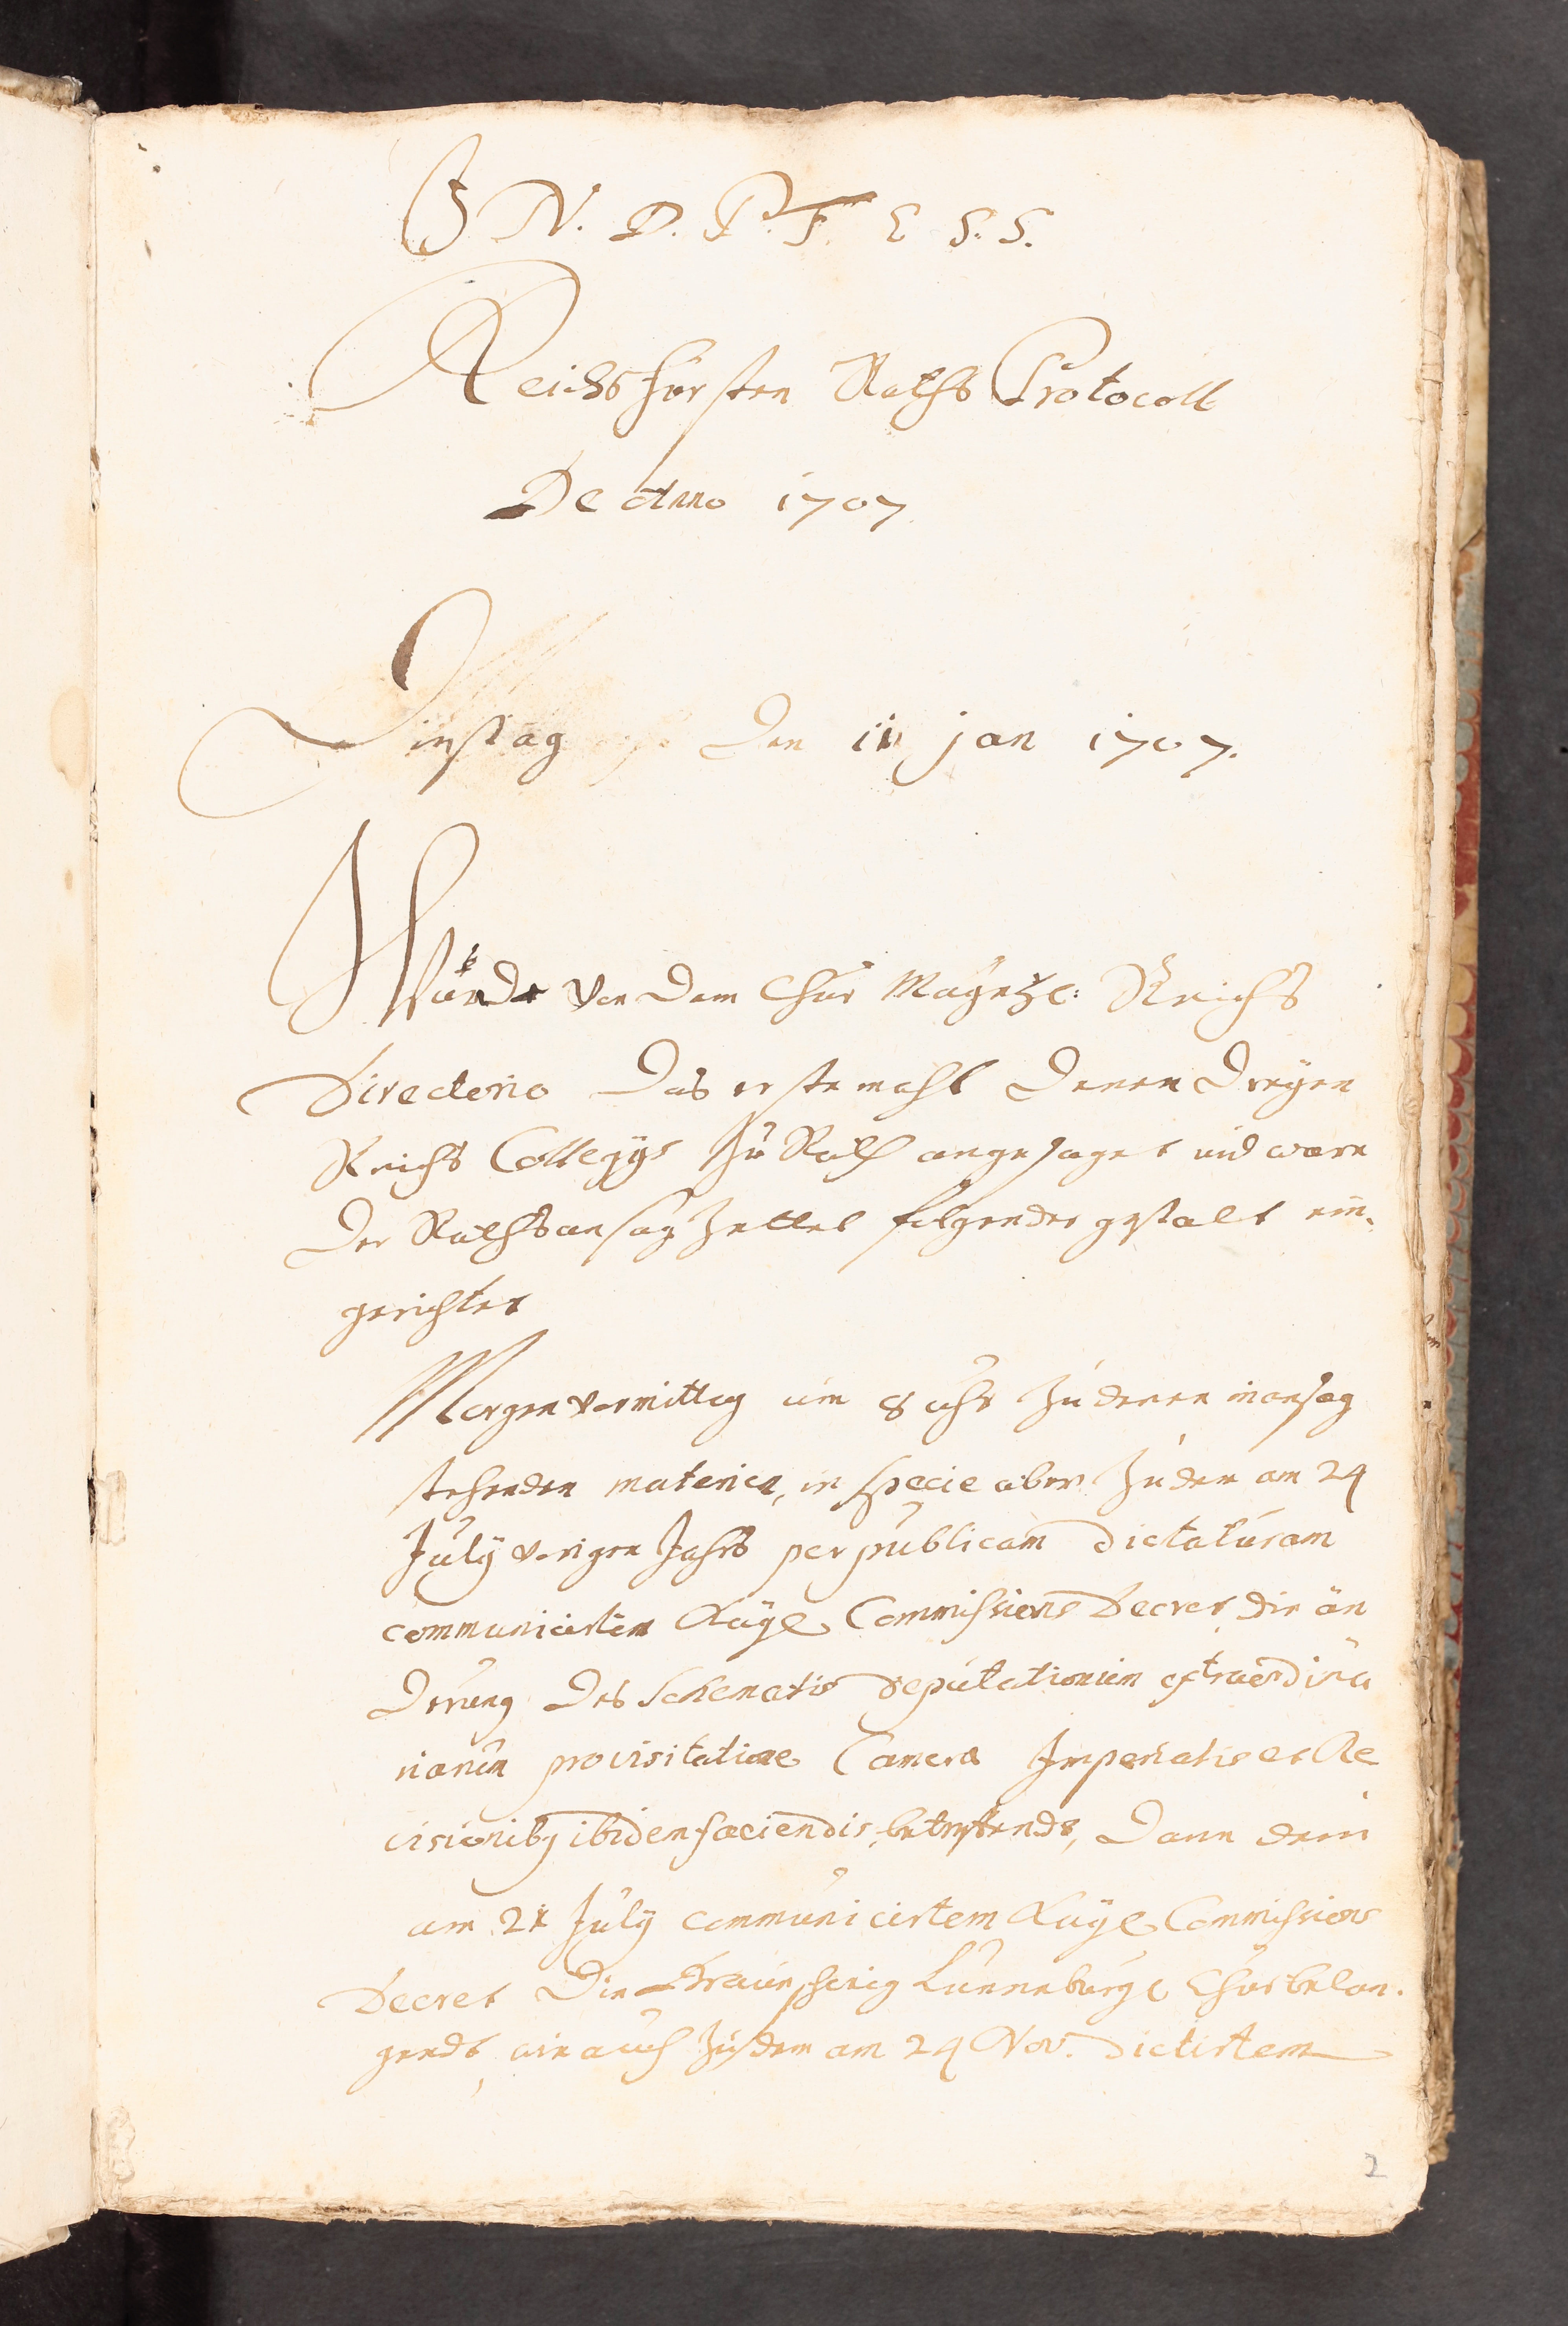 J N. D. P. F. E S. S.
Reichsfürsten Raths Protocoll
De Anno 1707.
Dinstag den 11 jan 1707.
Würde von dem Chur Mayntze: Reichs
Directorio das erste mahl denen dreyen
Reichs Collegijs zu Rath angesaget und ware
der Rathsansag Zettel folgender gestalt ein-
gerichtet
Morgen vormittag um 8 uhr zu denen in ansag
stehenden materien, in specie aber zu dem am 24
July vorigen Jahrs per publicam dictaturam
communicirten Kaÿl Commissions Decret, die än
derung des Schematis deputationum extraordina
riarum pro visitatione Camerae Imperialis et Re
visionibq ibidem faciendis, betreffende, dann dem
am 21 July communicirtem Kaÿl Commissions
Decret die Braunschweig Lünneburgl Chur belan-
gendt, wie auch zu dem am 24 Nov. dictirtem
2